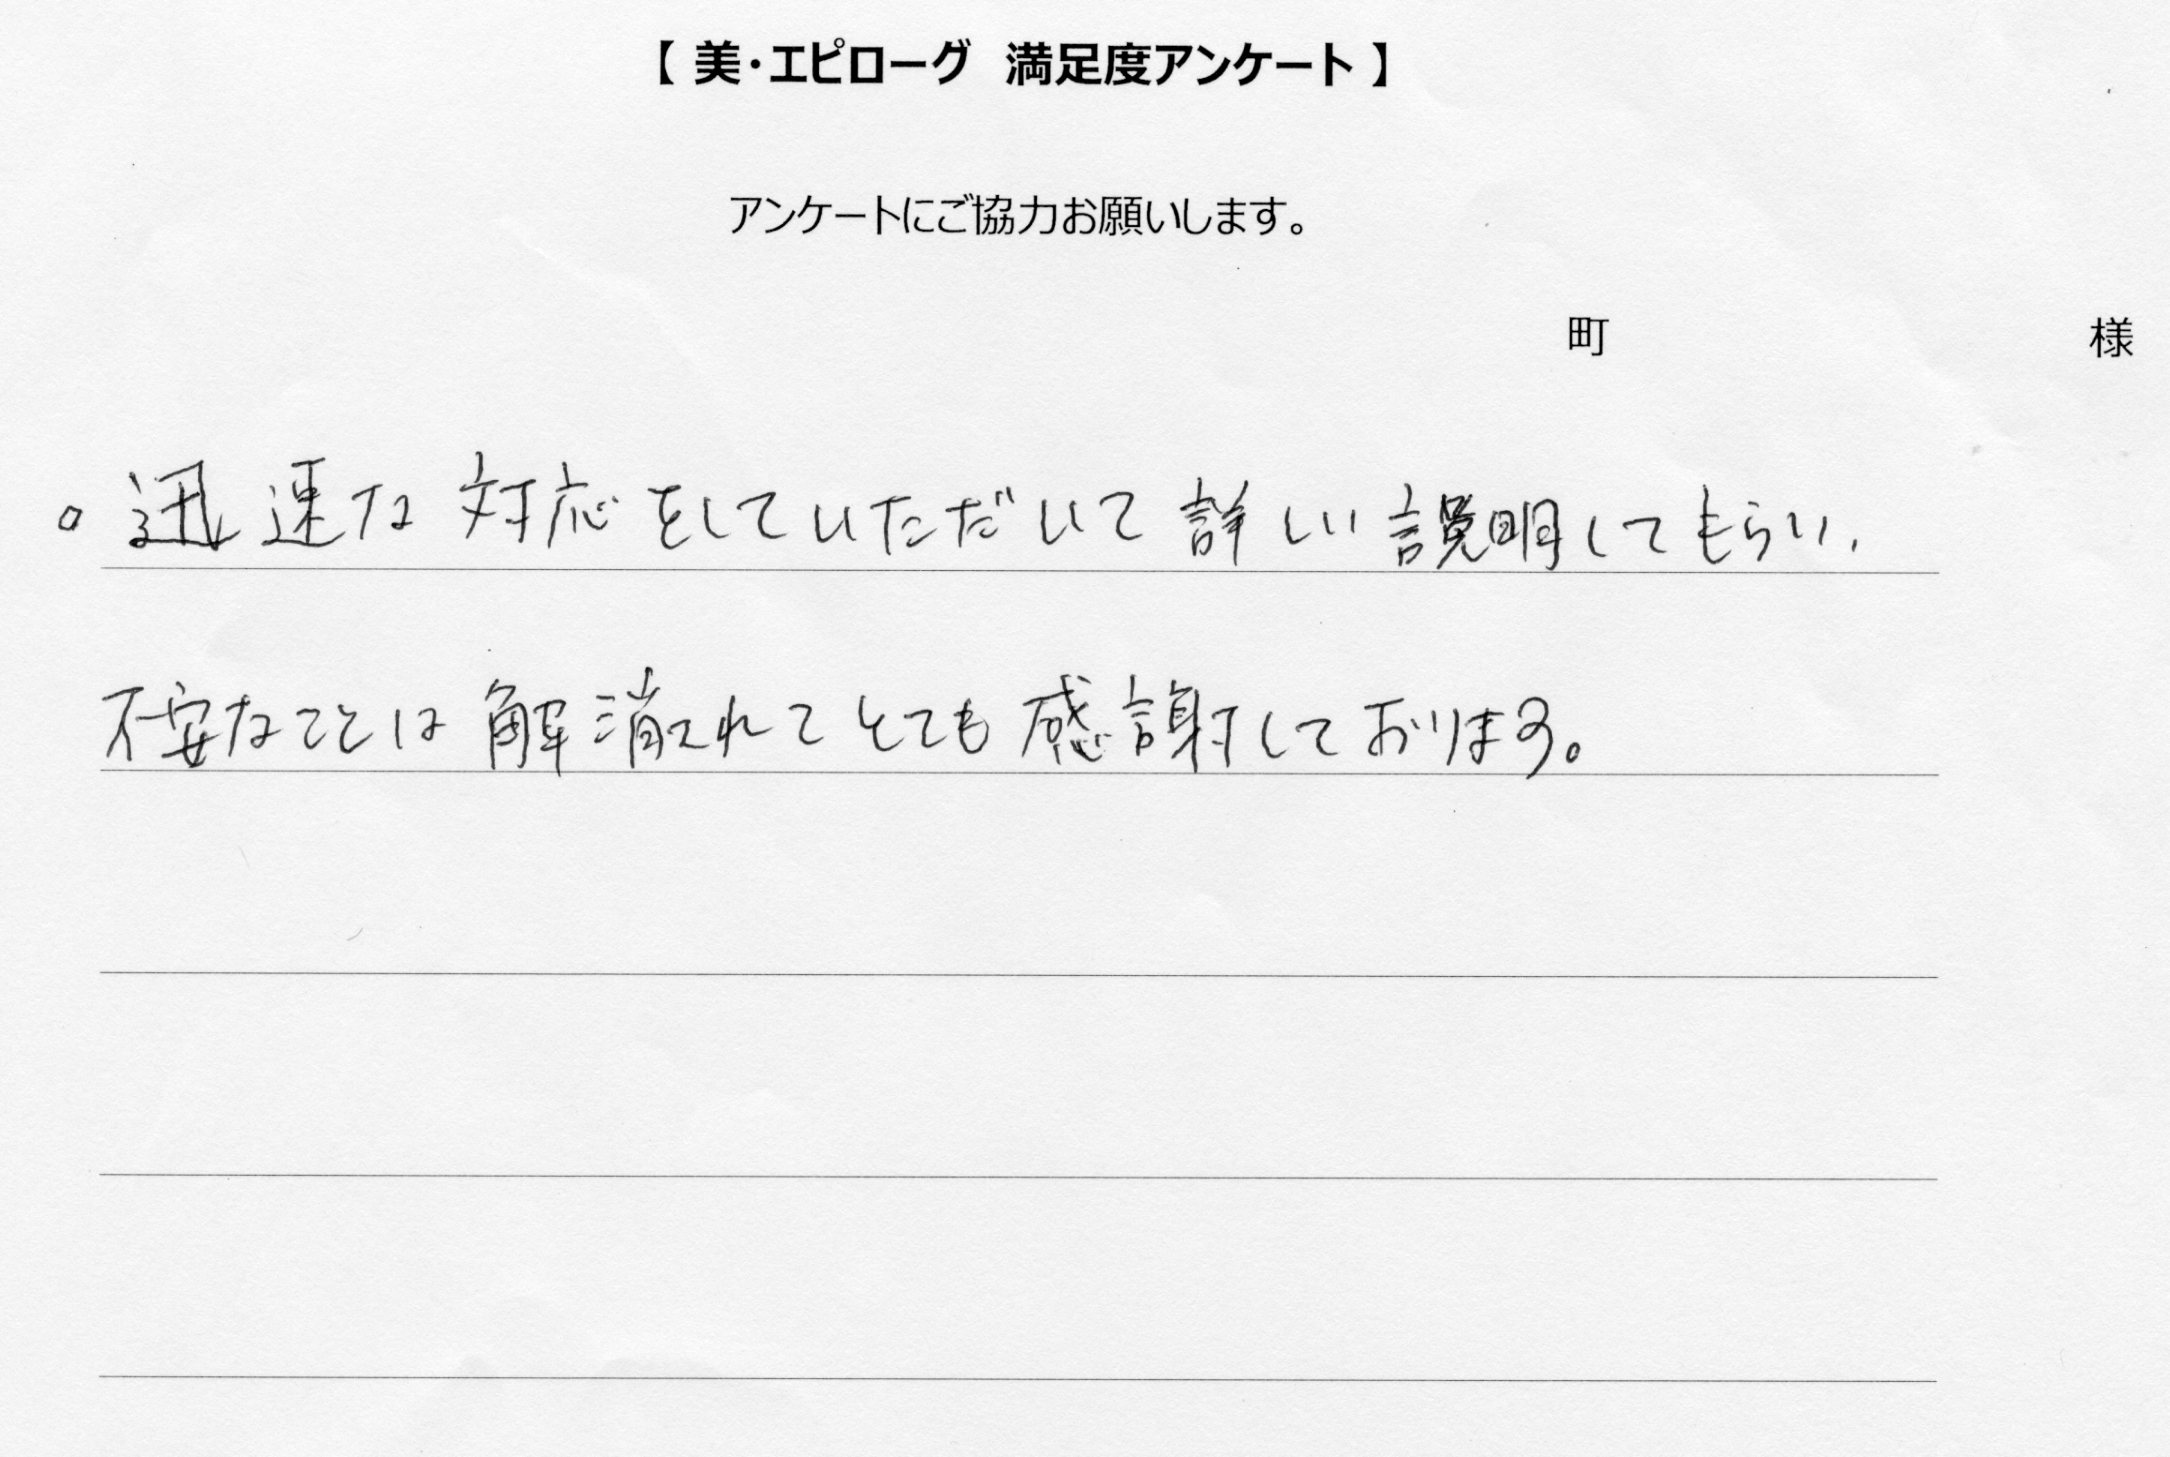 【 美・エピローグ 満足度アンケート 】
アンケートにご協力お願いします。
町 様
。迅速な対応をしていただいて詳しい説明してもらい、
不安なことは解消されてとても感謝しております。